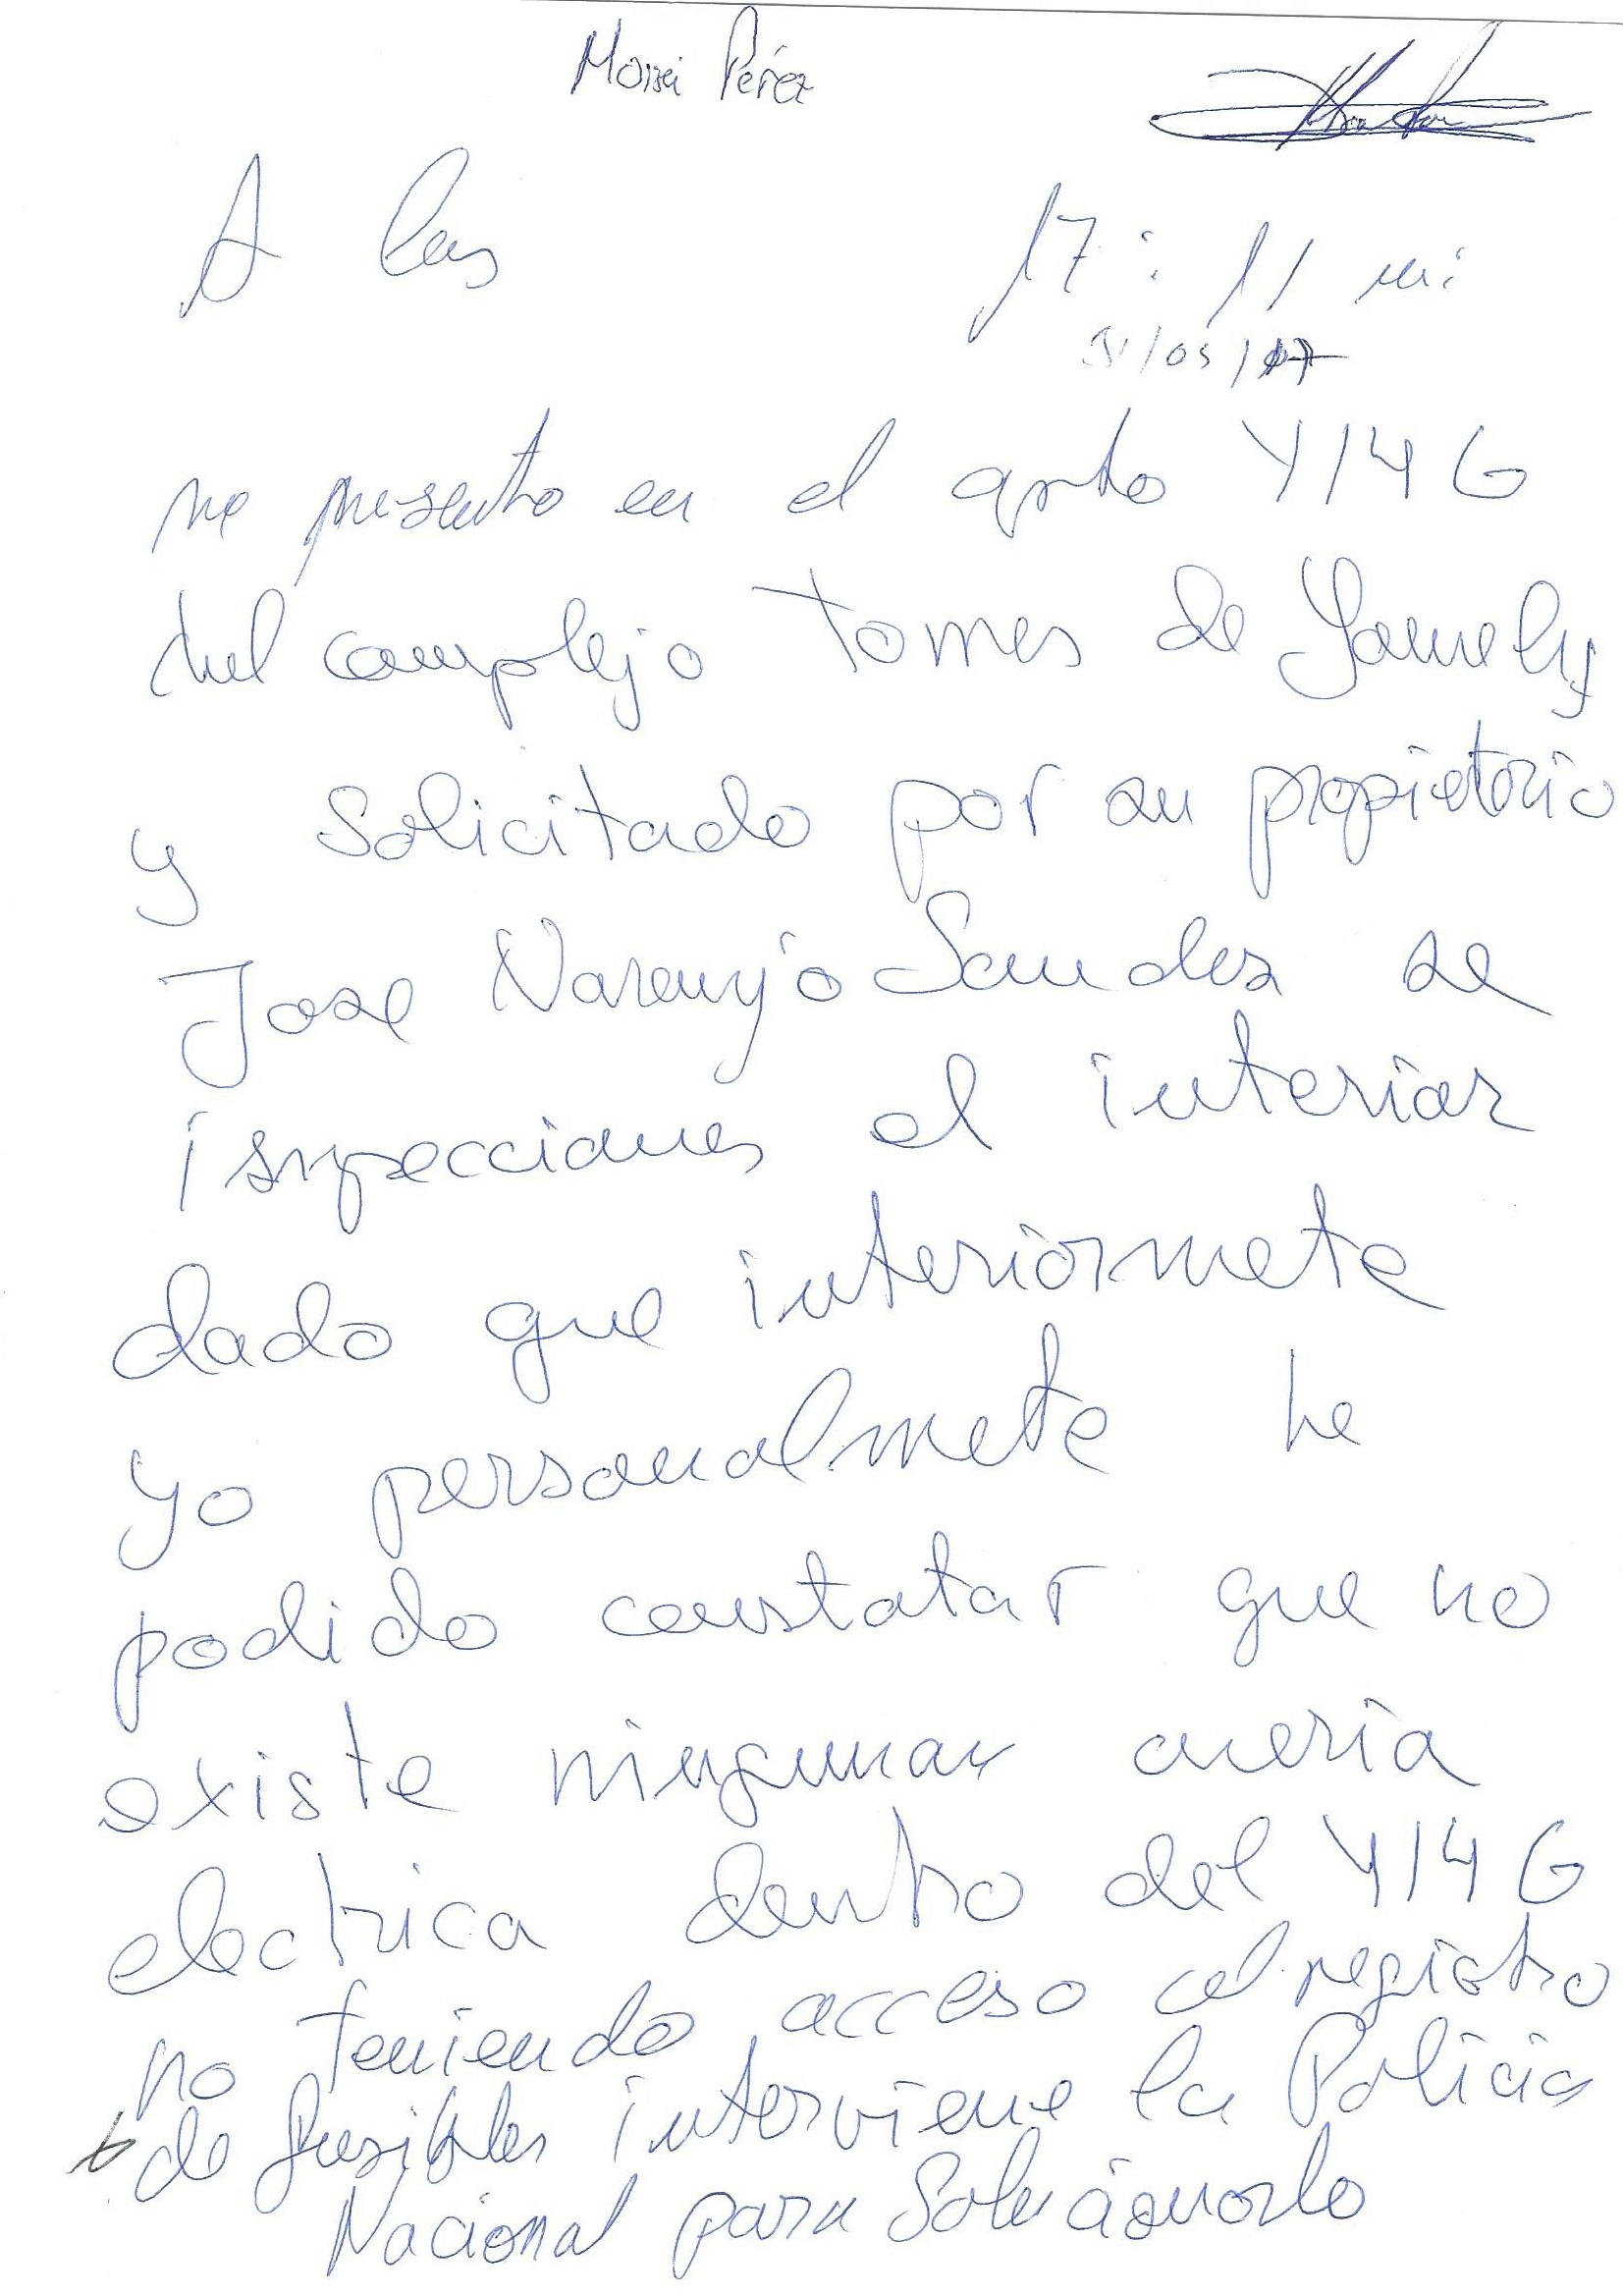 Moisei Pérez
A las 17:11 mi:
31/05/17
me presento en el apto Y14G
del complejo torres de Yomely
y solicitado por su propietorio
Jose Naranjo Sandez se
ispecciones el interior
dado que interiormete
yo personalmete he
podido constatar que no
existe ningunar averia
electrica dentro del Y14G
no teniendo acceso al registro
de fusibles interviene la Policia
Nacional para